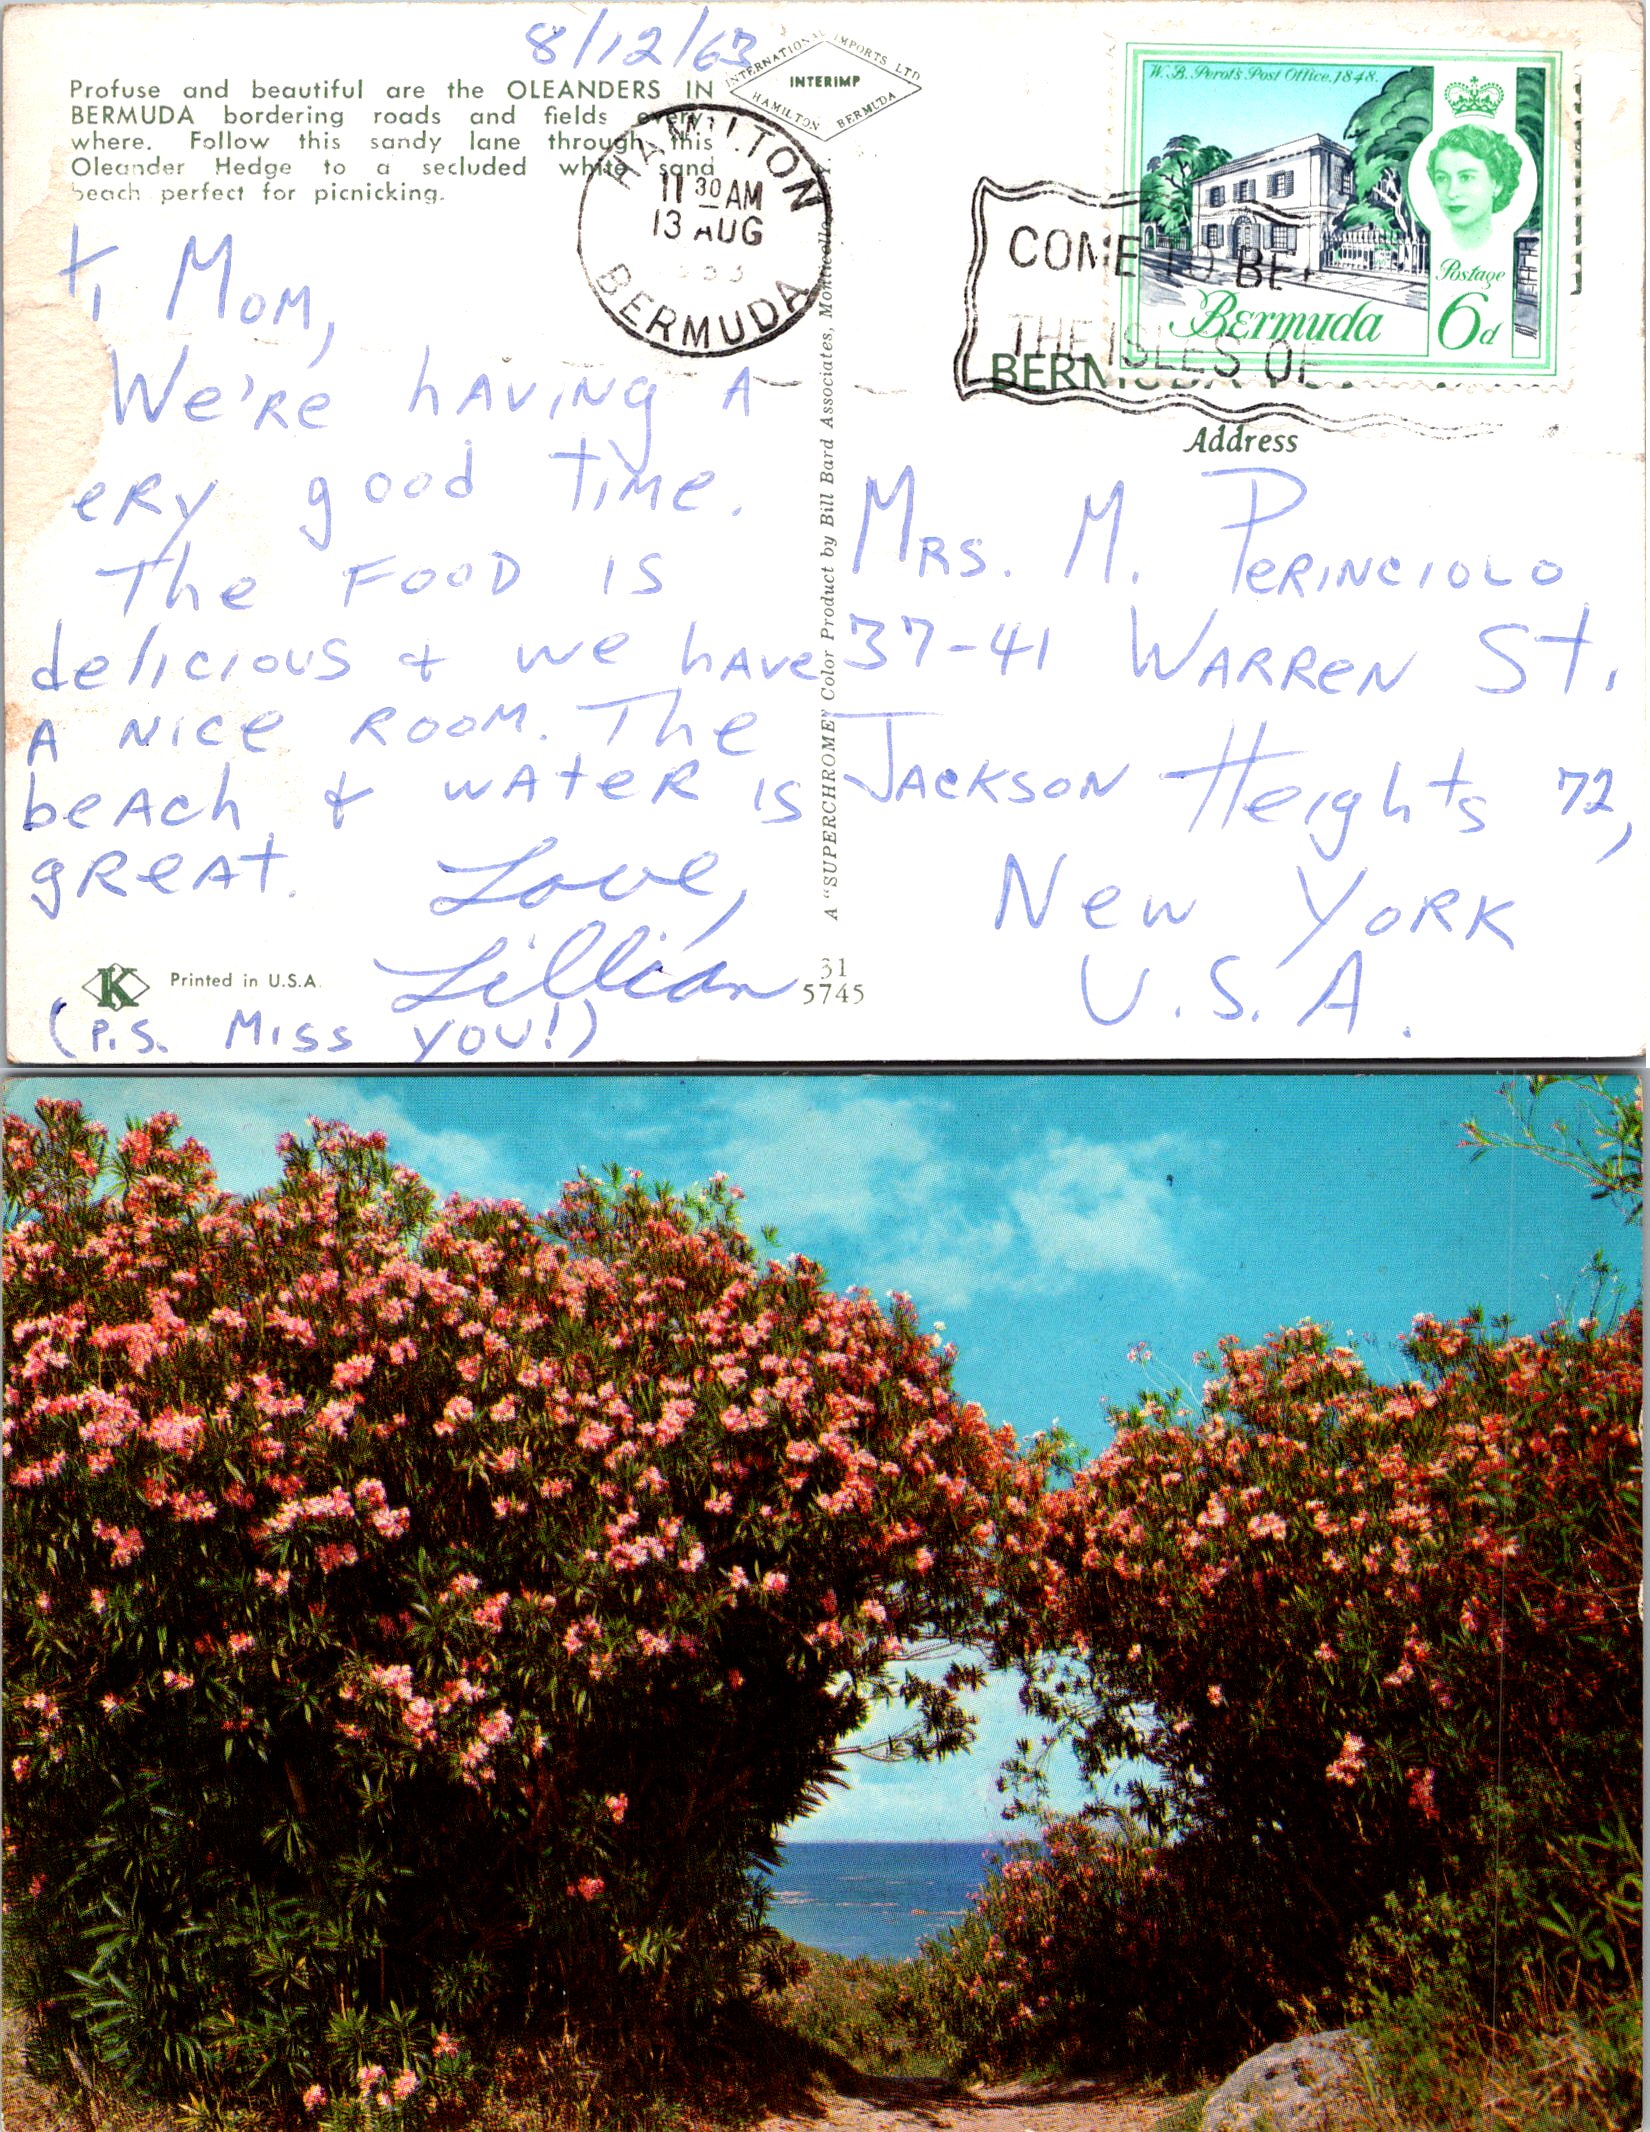 8/12/63
Profuse and beautiful are the OLEANDERS IN
BERMUDA bordering roads and fields every-
where. Follow this sandy lane through this
Oleander Hedge to a secluded white sand
beach perfect for picnicking.
INTERNATIONAL IMPORTS LTD
INTERIMP
HAMILTON BERMUDA
HAMILTON
11 30 AM
13 AUG
BERMUDA
COME TO BER
THE ISLES OF
W. B. Perot's Post Office, 1848.
Postage
Bermuda 6d
Address
Mom,
We're having a
ery good time.
The food is
delicious & we have
a nice room. The
beach & water is
great. Love,
Lillian
(P.S. Miss you!)
Mrs. M. Perinciolo
37-41 Warren St.
Jackson Heights 72,
New York
U.S.A.
A "SUPERCHROME" Color Product by Bill Bard Associates, Monticello,
K Printed in U.S.A.
31
5745